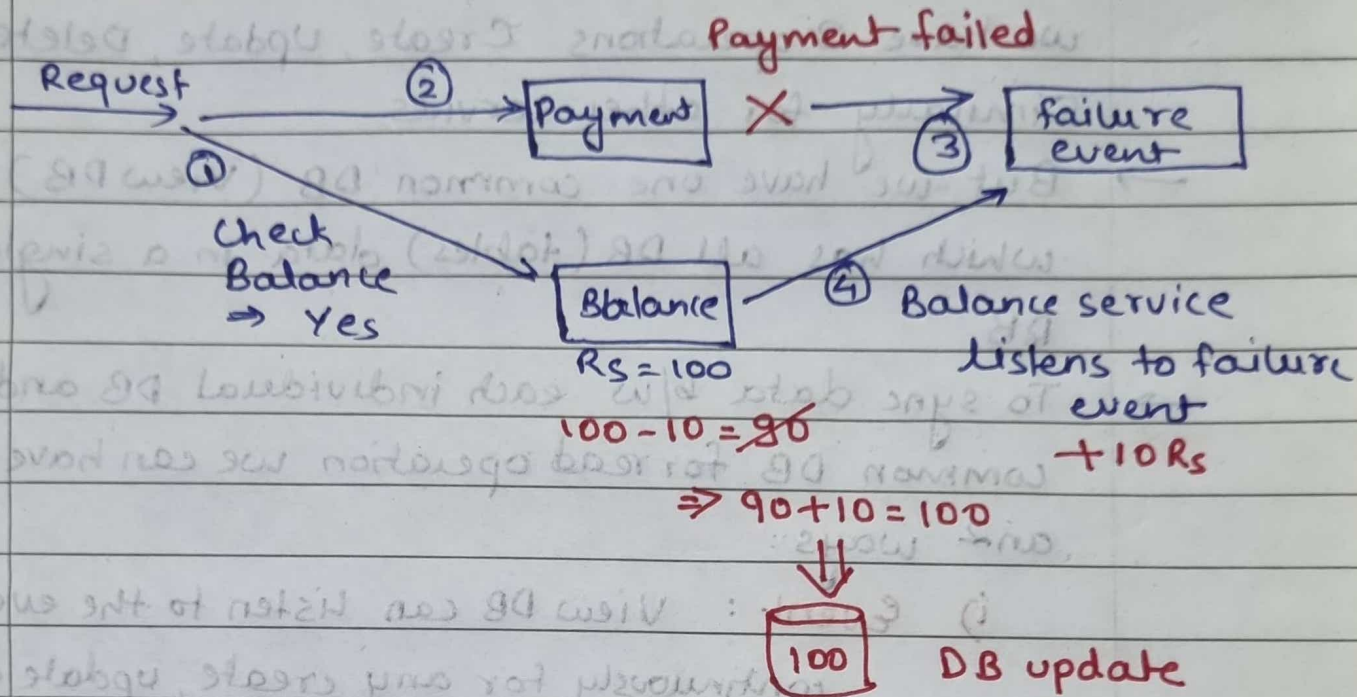 Payment failed
Request
②
Payment
X
③
failure
event
①
Check
Balance
⇒ Yes
Balance
④
Balance service
Rs = 100
listens to failure
event
100 - 10 = 90
+10 Rs
⇒ 90 + 10 = 100
100
DB update